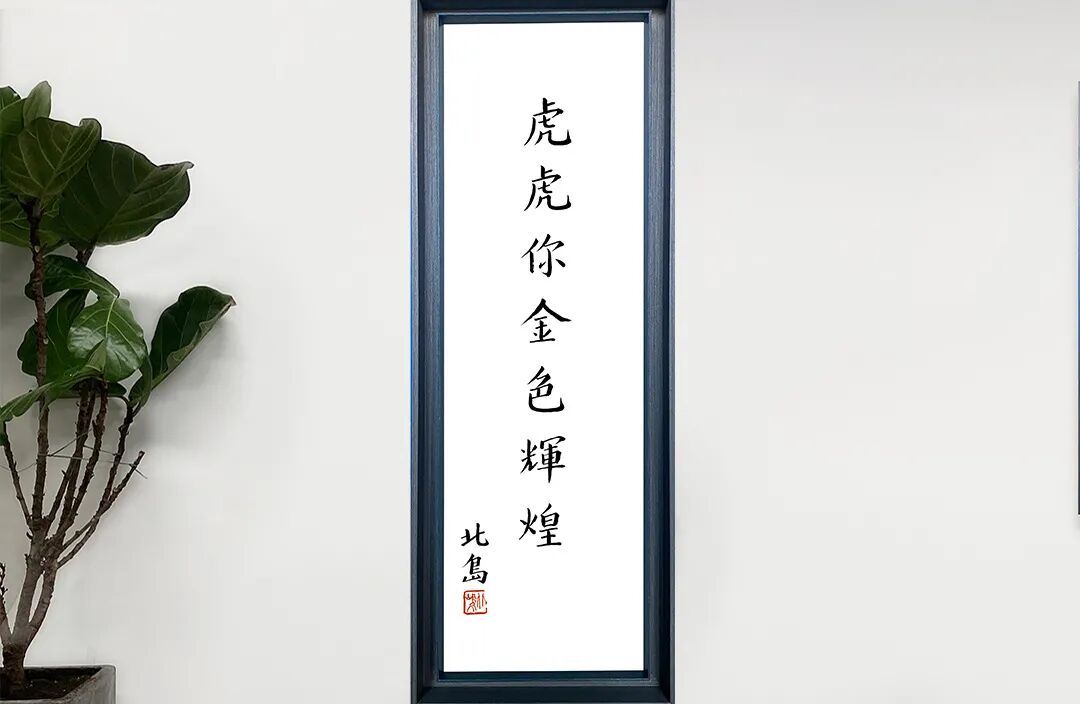 虎虎你金色輝煌
北島